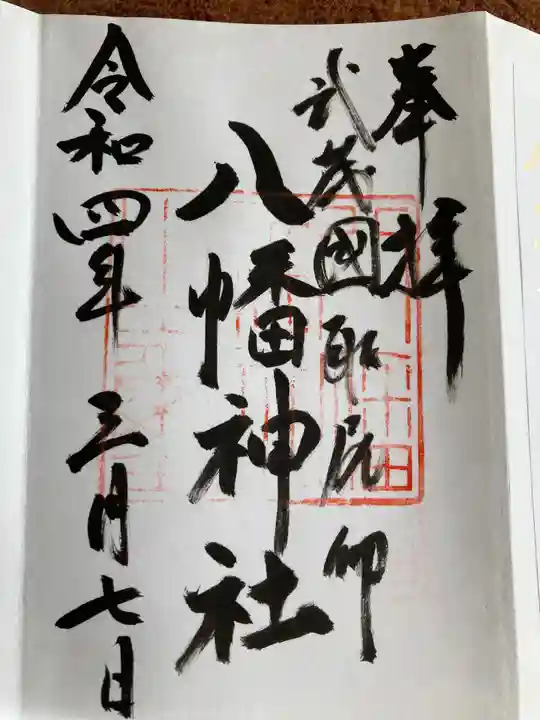 奉拝
武茂國取尻仰
八幡神社
令和四年 三月七日